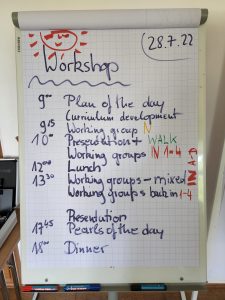 28.7.22
Workshop
9⁰⁰ Plan of the day
Curriculum development
9¹⁵ Working group N
10⁰⁰ Presentation + WALK
Working groups IN 1-4
12⁰⁰ Lunch
13³⁰ Working groups - mixed IN A-D
Working groups back in 1-4
Presentation
17⁴⁵ Pearls of the day
18⁰⁰ Dinner